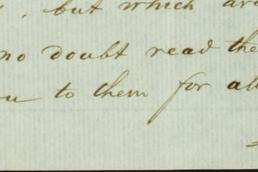 , but which are
no doubt read the
to them for